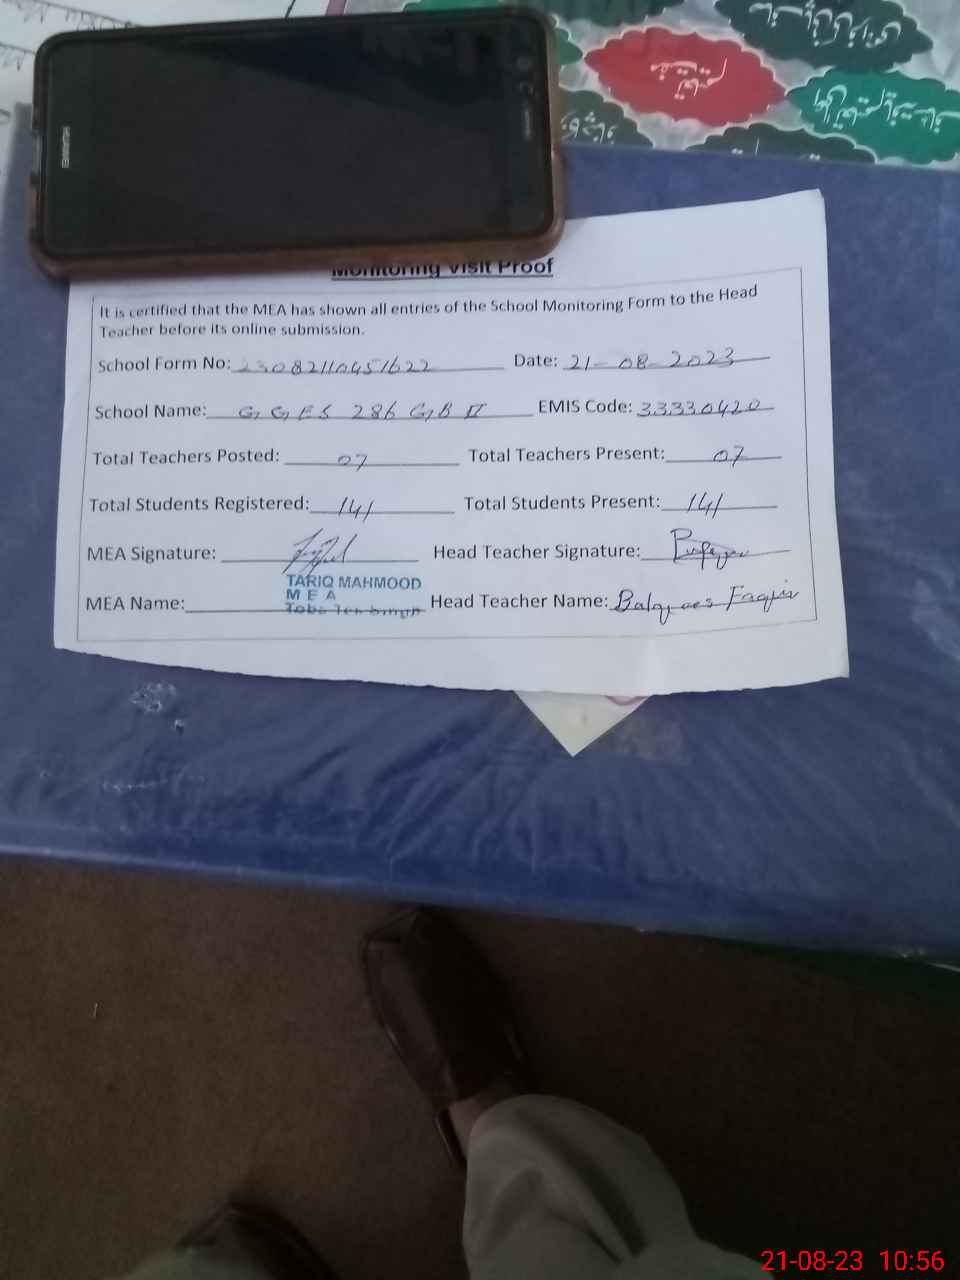 HUAWEI
Monitoring Visit Proof
It is certified that the MEA has shown all entries of the School Monitoring Form to the Head
Teacher before its online submission.
School Form No: 23082110451622 Date: 21-08-2023
School Name: GGES 286 GB II EMIS Code: 33330420
Total Teachers Posted: 07 Total Teachers Present: 07
Total Students Registered: 141 Total Students Present: 141
MEA Signature: Head Teacher Signature:
TARIQ MAHMOOD
MEA
MEA Name: Toba Tek Singh Head Teacher Name: Balqees Faqir
21-08-23 10:56